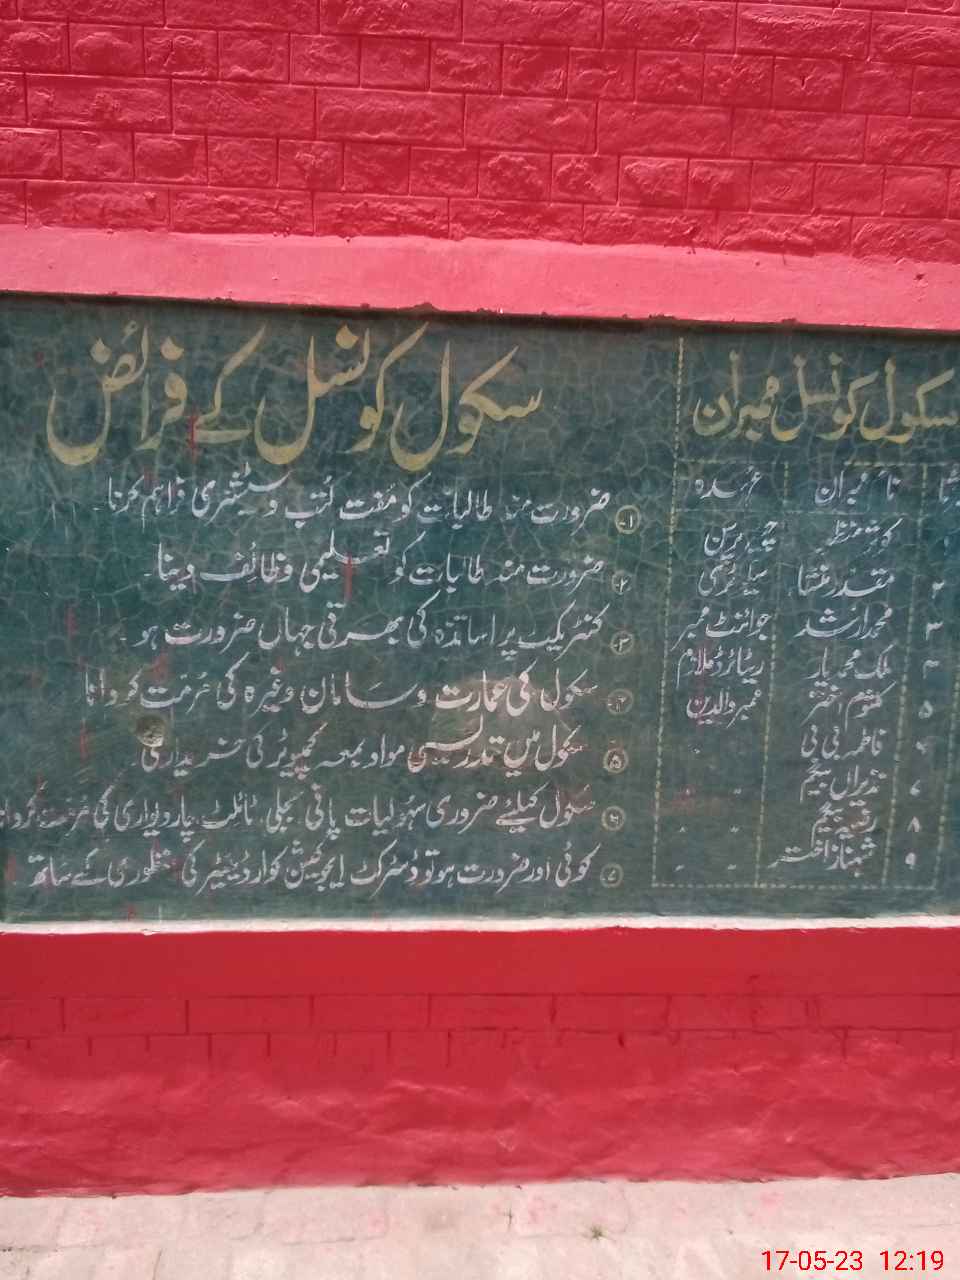 سکول کونسل ممبران
نام ممبران عہدہ
کوثر منظور چیئرپرسن
۲ سیکرٹری
۳ محمد ارشد جوائنٹ ممبر
۴ ملک محمد یار ریٹائرڈ ملازم
۵ کلثوم اختر ممبر والدین
فاطمہ بی بی
۷ نذیراں بیگم
۸ رقیہ بیگم
۹ شہناز اختر
سکول کونسل کے فرائض
۱- ضرورت مند طالبات کو مفت کتب و سٹیشنری فراہم کرنا۔
۲ ضرورت مند طالبات کو تعلیمی وظائف دینا۔
۳- کنٹریکٹ پر اساتذہ کی بھرتی جہاں ضرورت ہو۔
۴- سکول کی عمارت و سامان وغیرہ کی مرمت کروانا
۵ سکول میں تدریسی مواد بمعہ کمپیوٹر کی خریداری۔
۶ سکول کیلئے ضروری سہولیات پانی، بجلی، ٹائلٹ، چاردیواری کی مرمت کروانا
۷ کوئی اور ضرورت ہو تو ڈسٹرکٹ ایجوکیشن کوارڈینیٹر کی منظوری کے ساتھ۔
17-05-23 12:19